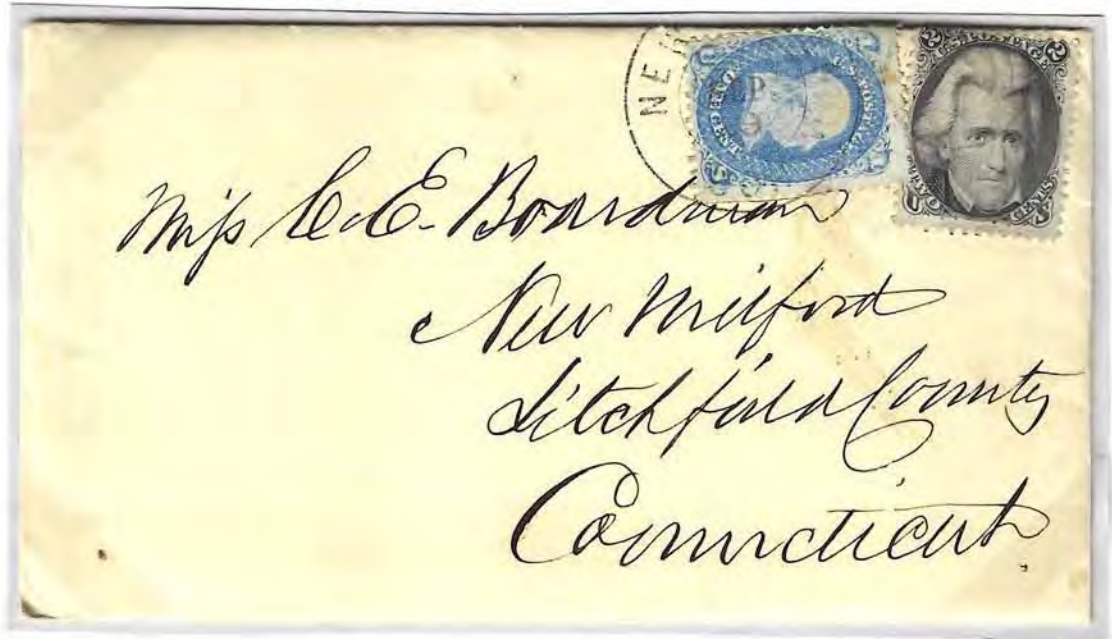 NE
U.S. POSTAGE
ONE CENT
U.S. POSTAGE
2 2
U TWO CENTS S
Miss C. E. Boardman
New Milford
Litchfield County
Connecticut